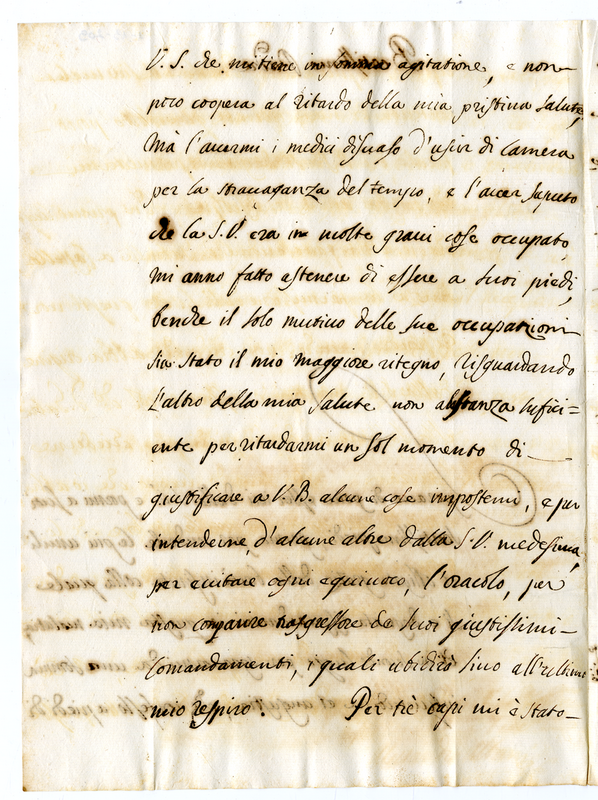 V. S. che mi tiene in somma agitatione, e non
poco coopera al ritardo della mia pristina salute,
Mà l'avermi i medici disuaso d'uscir di Camera
per la stravaganza del tempo, e l'aver saputo
che la S.V. era in molte gravi cose occupato,
mi anno fatto astenere di essere a suoi piedi,
benche il solo motivo delle sue occupationi
sia stato il mio maggiore ritegno, risguardando
L'altro della mia salute non abastanza sufici=
ente per ritardarmi un sol momento di
giustificare a V. B. alcune cose impostemi, e per
intenderne, d'alcune altre dalla S.V. medesima,
per evitare ogni equivoco, l'oracolo, per
non comparire trasgressore de suoi giustissimi
Comandamenti, i quali ubidirò sino all'ultimo
mio respiro. Per trè capi mi è stato